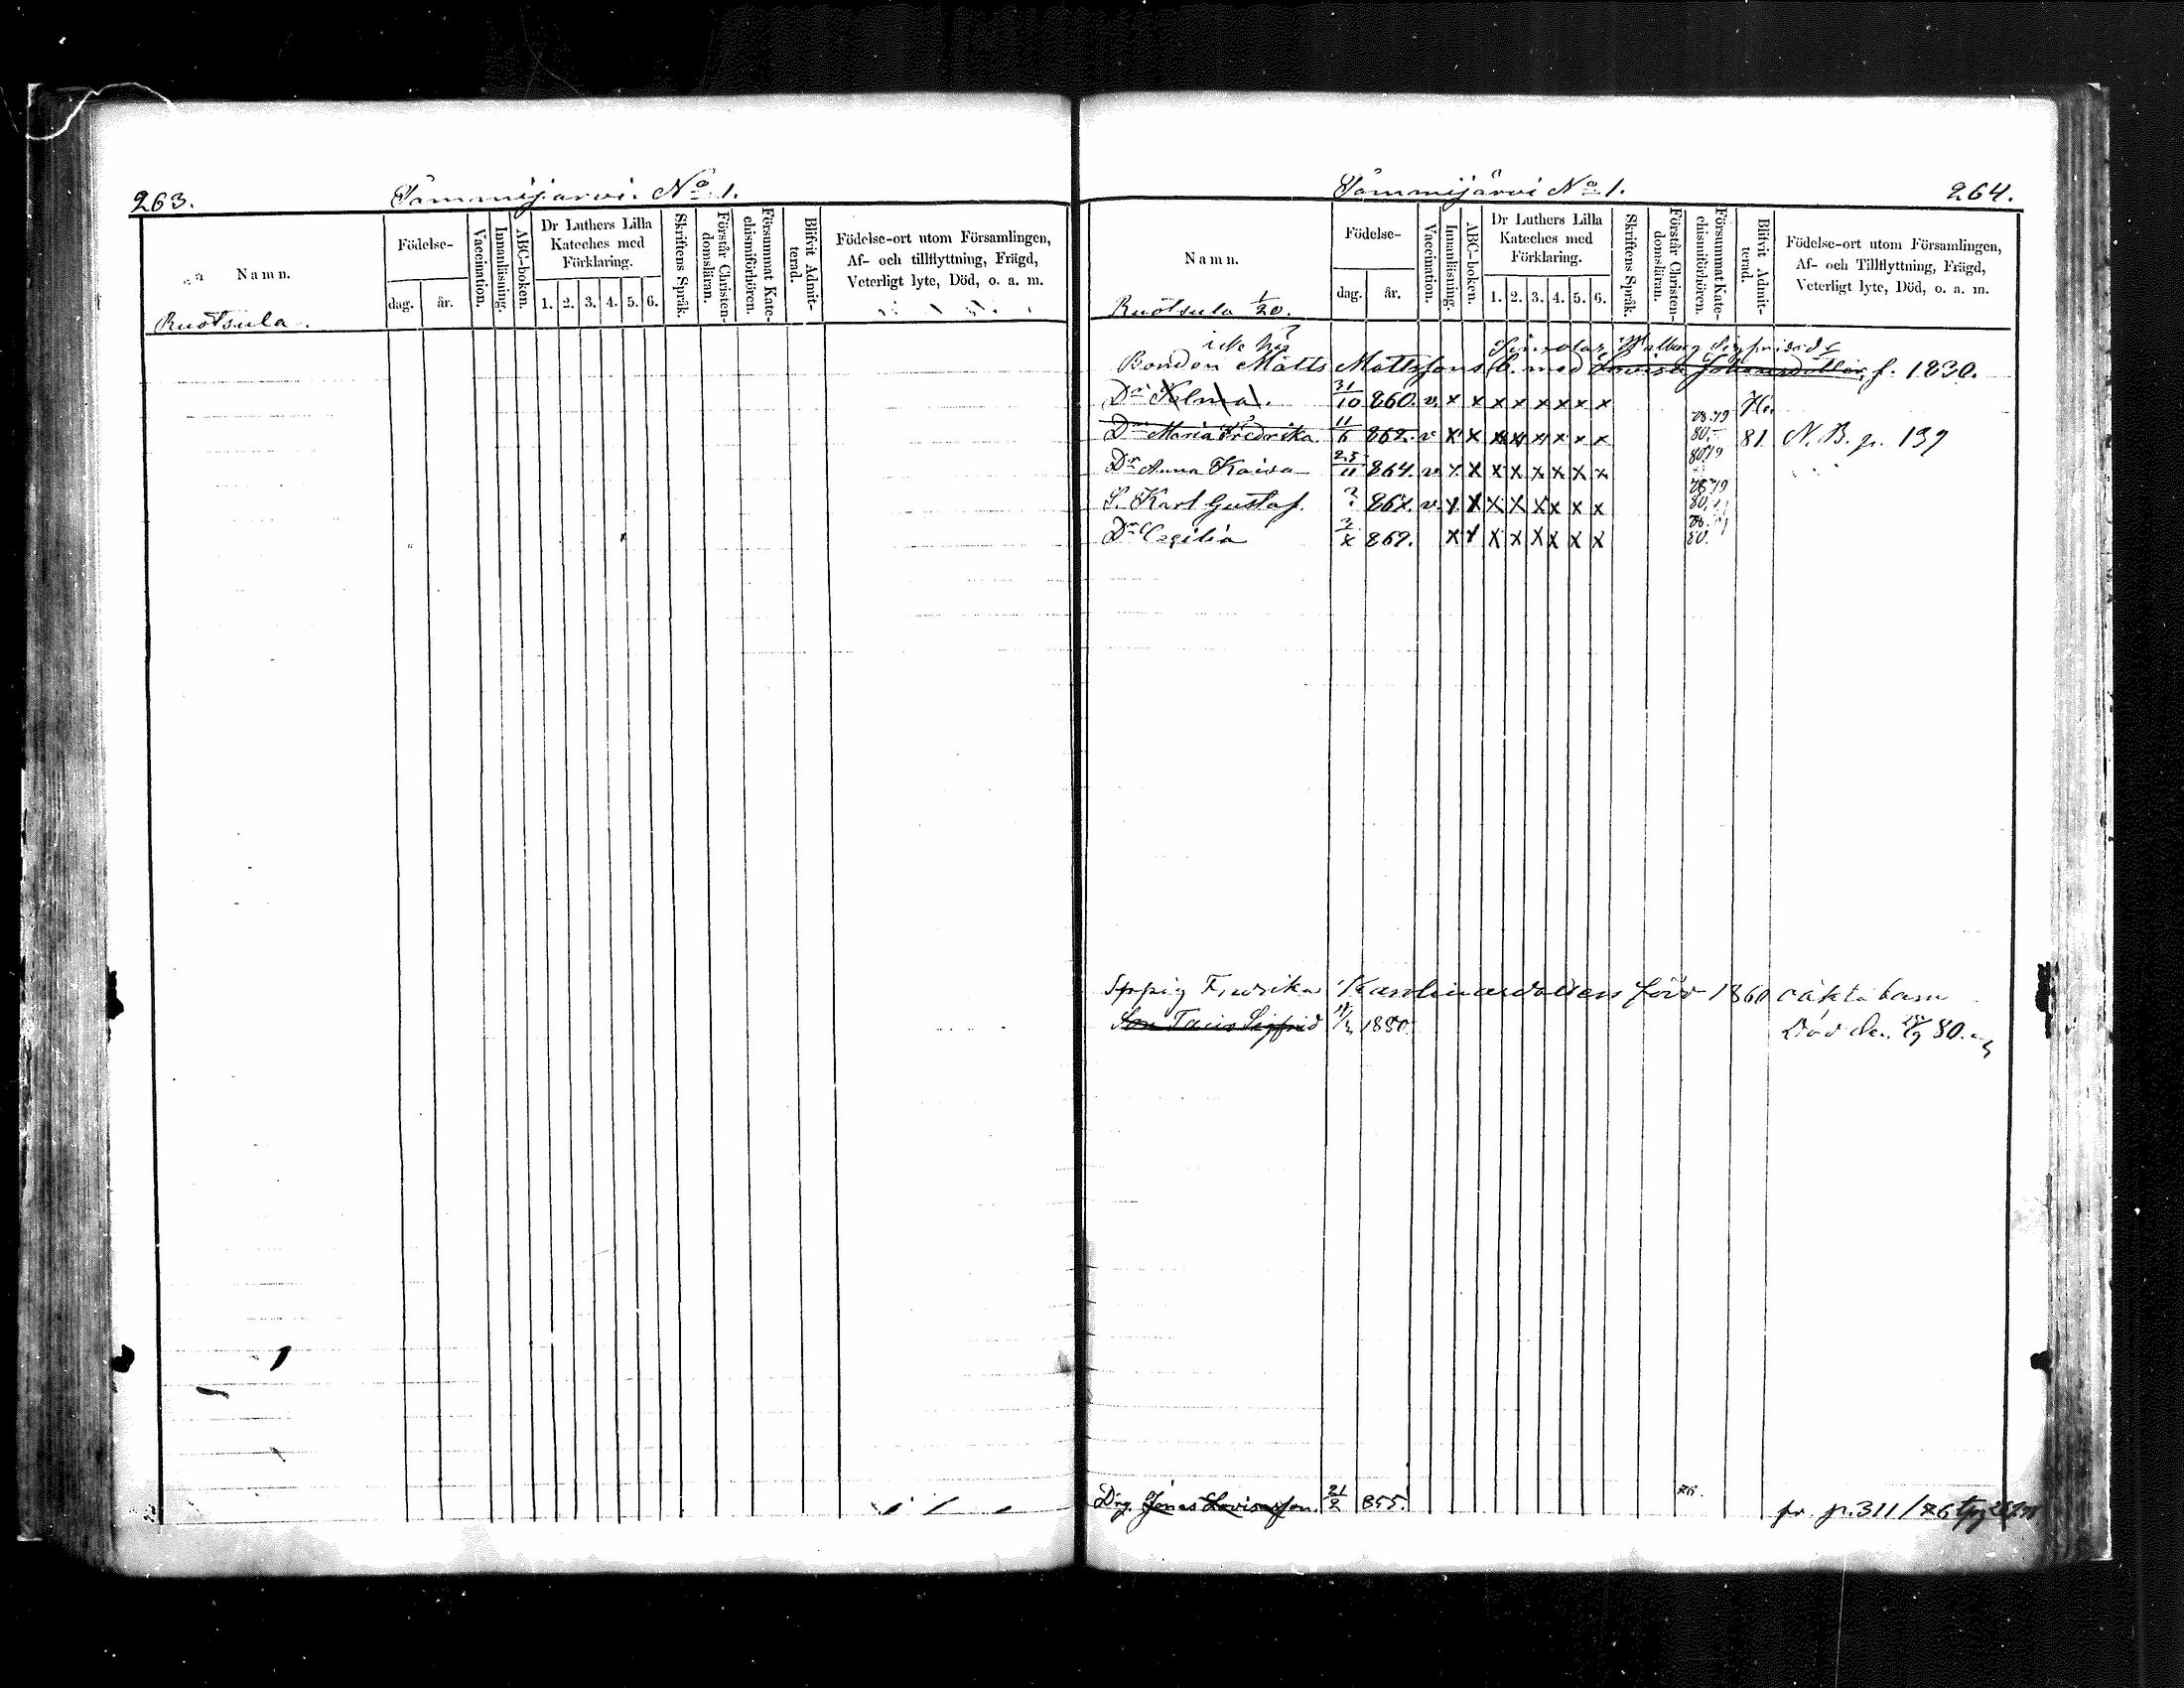 263.
Sämmijärvi. No 1.
Namn.
Födelse-
dag.
år.
Vaccination.
Innanläsning.
ABC-boken.
Dr Luthers Lilla Kateches med Förklaring.
1. 2. 3. 4. 5. 6.
Skriftens Språk.
Förstår Christendomsläran.
Försummat Katechismiförhören.
Blifvit Admitterad.
Födelse-ort utom Församlingen,
Af- och tillflyttning, Frägd,
Veterligt lyte, Död, o. a. m.
Ruotsula.
Sämmijärvi No 1.
264.
Namn.
Födelse-
dag.
år.
Vaccination.
Innanläsning.
ABC-boken.
Dr Luthers Lilla Kateches med Förklaring.
1. 2. 3. 4. 5. 6.
Skriftens Språk.
Förstår Christendomsläran.
Försummat Katechismiförhören.
Blifvit Admitterad.
Födelse-ort utom Församlingen,
Af- och Tillflyttning, Frägd,
Veterligt lyte, Död, o. a. m.
Ruotsula 1/20.
icke här
Walborg Sigfridsd:r
Bonden Matts Mattssons b. med Lovisa Johansdotter, f. 1830.
Dr Helma. 31/10 860. v. x x x x x x x x
Dr Maria Fredrika. 11/6 862. v x x x x x x x x 78.79 80. 81 N. B. p. 139
Dr Anna Kaisa 25/11 864. v. x x x x x x x x 80.79
S. Karl Gustaf. 867. v. x x x x x x x x 78.79 80.
Dr Cecilia 869. x x x x x x x x 80.
Fredrika Karolinasdotters född 1860 oäkta barn
Son Sigfrid 1880. Död den 80.
Drg. Jonas Lovisasson. 21/2 855. 76. fr. p. 311/76